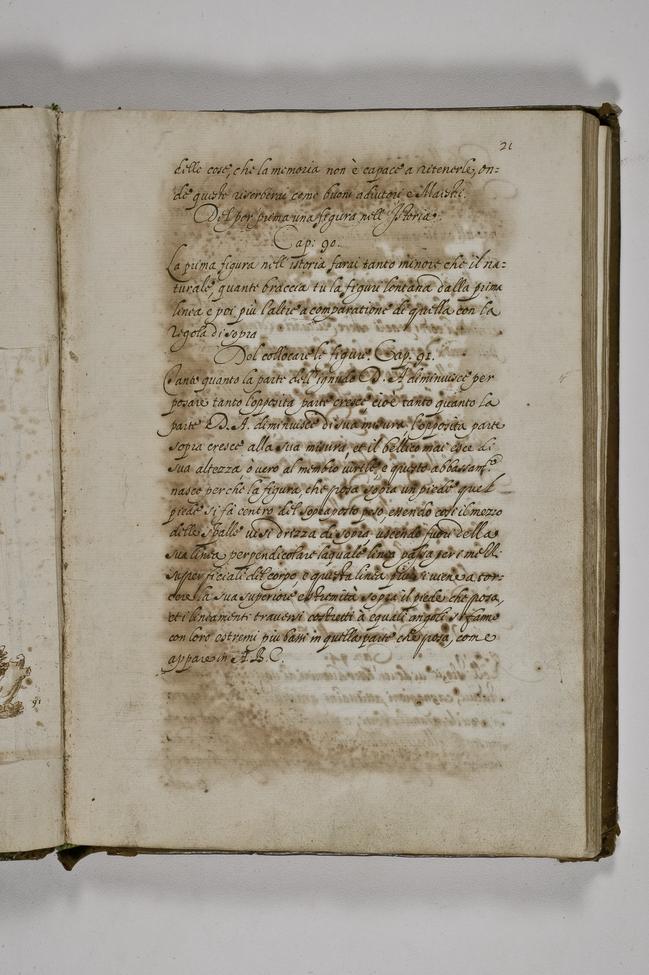 21
delle cose, che la memoria non è capace a ritenerle, on=
de queste riserberai come buoni adiutori e Maestri.
Del por prima una figura nell'Istoria.
Cap: 90.
La prima figura nell'istoria farai tanto minore che il na=
turale, quante braccia tu la figuri lontana dalla prima
linea e poi più l'altre a comparatione di quella con la
regola di sopra
Del collocare le figure. Cap. 91.
Tanto quanto la parte dell'ignudo D. A diminuisce per
posare tanto l'opposita parte cresce cioè tanto quanto la
parte D. A. diminuisce di sua misura l'opposita parte
sopra cresce alla sua misura, et il bellico mai esce di
sua altezza overo al membro virile, e questo abbassamto
nasce perché la figura, che posa sopra un piede quel
piede si fà centro del sopraposto peso, essendo così il mezzo
delle spalle vi si drizza di sopra uscendo fuori della
sua linea perpendicolare laquale linea passa per i mezzi
superficiali del corpo, e questa linea più si viene a tor=
cere la sua superiore estremità sopra il piede che posa,
et i lineamenti traversi costretti à eguali angoli si fanno
con loro estremi più bassi in quella parte che posa, come
appare in A. B. C.
91